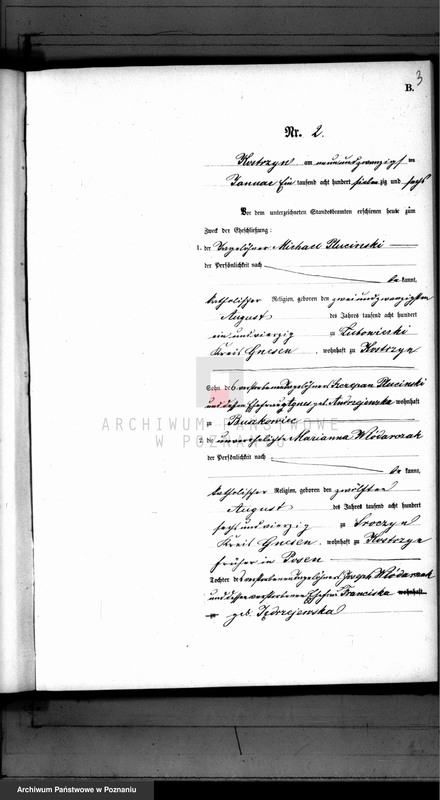 3
B.
Nr. 2.
Kostrzyn am neunundzwanzigsten
Januar Ein tausend acht hundert siebenzig und sechs
Vor dem unterzeichneten Standesbeamten erschienen heute zum
Zweck der Eheschließung:
1. der Tagelöhner Michael Plucinski
der Persönlichkeit nach
be kannt,
katholischer Religion, geboren den zweiundzwanzigsten
August des Jahres tausend acht hundert
einundvierzig zu
Kreis Gnesen, wohnhaft zu Kostrzyn
Sohn des verstorbenen Tagelöhners Szczepan Plucinski
und dessen Ehefrau Agnes geb. Andrzejewska wohnhaft
zu
2. die unverehelichte Marianna Włódarczak
der Persönlichkeit nach
be kannt,
katholischer Religion, geboren den zwölften
August des Jahres tausend acht hundert
sechsundvierzig zu Sroczyn
Kreis Gnesen, wohnhaft zu Kostrzyn
früher in Posen
Tochter des verstorbenen Tagelöhners Joseph Włódarczak
und dessen verstorbenen Ehefrau Franciska wohnhaft
zu geb. Jędrzejewska
ARCHIWUM PAŃSTWOWE
W POZNANIU
Archiwum Państwowe w Poznaniu